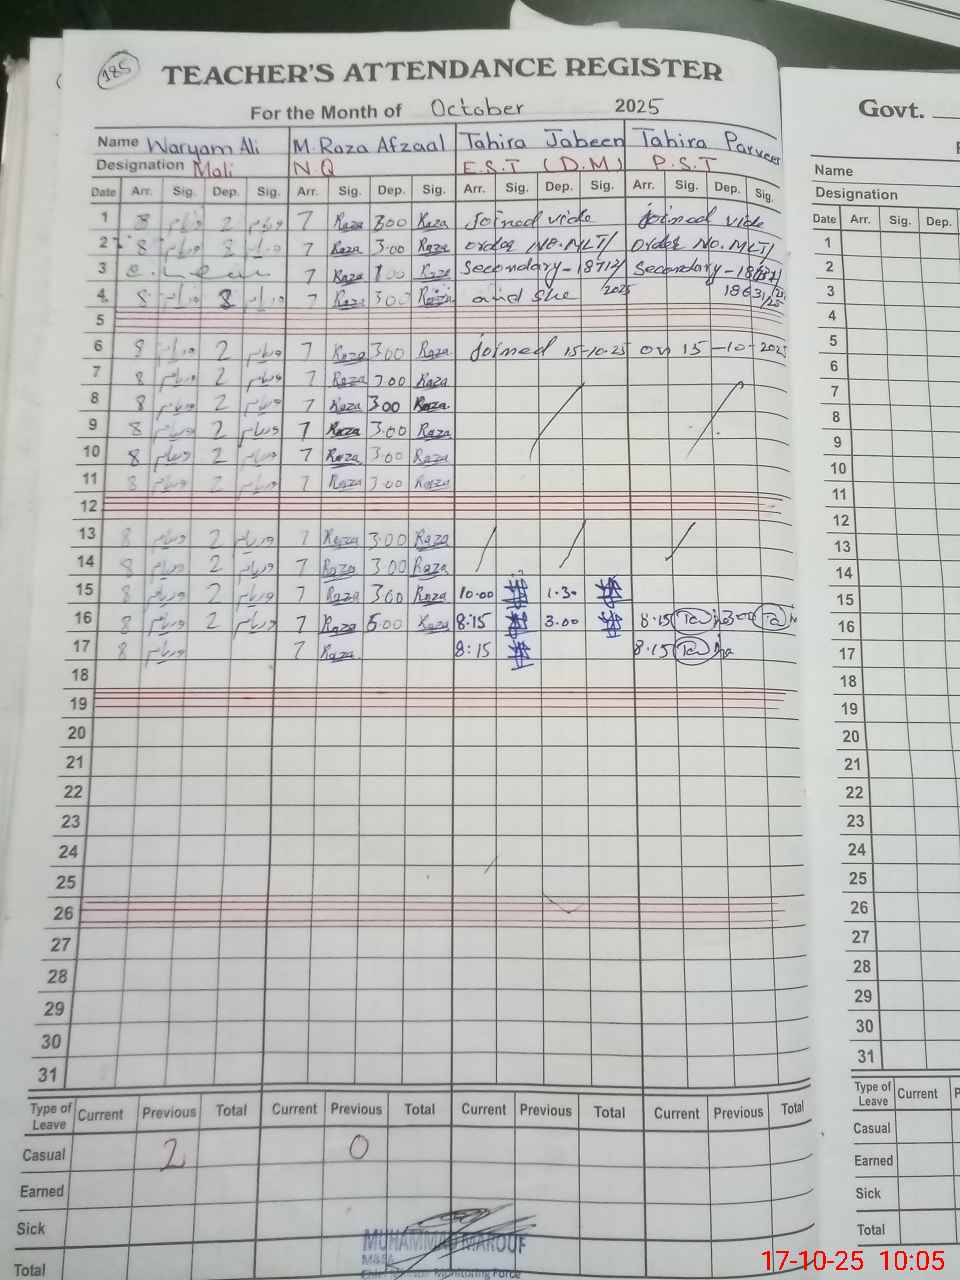 185
TEACHER'S ATTENDANCE REGISTER
For the Month of October 2025
Name Waryam Ali M. Raza Afzaal Tahira Jabeen Tahira Parveen
Designation Mali N.Q E.S.T (D.M) P.S.T
Date Arr. Sig. Dep. Sig. Arr. Sig. Dep. Sig. Arr. Sig. Dep. Sig. Arr. Sig. Dep. Sig.
1 8 وریام 2 وریام 7 Raza 3.00 Raza Joined vide Joined vide
2 8 وریام 8 وریام 7 Raza 3.00 Raza order No. MLT/ order No. MLT/
3 7 Raza 00 Raza Secondary - 18712/ Secondary -
4 8 وریام 8 وریام 7 Raza 3.00 Raza and she 2025 18631/25
5
6 8 وریام 2 وریام 7 Raza 3.00 Raza Joined 15-10-25 on 15-10-2025
7 8 وریام 2 وریام 7 Raza 3.00 Raza
8 8 وریام 2 وریام 7 Raza 3.00 Raza
9 8 وریام 2 وریام 7 Raza 3.00 Raza
10 8 وریام 2 وریام 7 Raza 3.00 Raza
11 8 وریام 2 وریام 7 Raza 3.00 Raza
12
13 8 وریام 2 وریام 7 Raza 3.00 Raza
14 8 وریام 2 وریام 7 Raza 3.00 Raza
15 8 وریام 2 وریام 7 Raza 3.00 Raza 10.00 1.30
16 8 وریام 2 وریام 7 Raza 6.00 Raza 8:15 3.00 8.15 3.00
17 8 وریام 7 Raza 8:15 8.15
18
19
20
21
22
23
24
25
26
27
28
29
30
31
Type of Leave Current Previous Total Current Previous Total Current Previous Total Current Previous Total
Casual 2 0
Earned
Sick
Total
MUHAMMAD MAROUF
Govt.
Name
Designation
Date Arr. Sig. Dep.
1
2
3
4
5
6
7
8
9
10
11
12
13
14
15
16
17
18
19
20
21
22
23
24
25
26
27
28
29
30
31
Type of Leave Current
Casual
Earned
Sick
Total
17-10-25 10:05